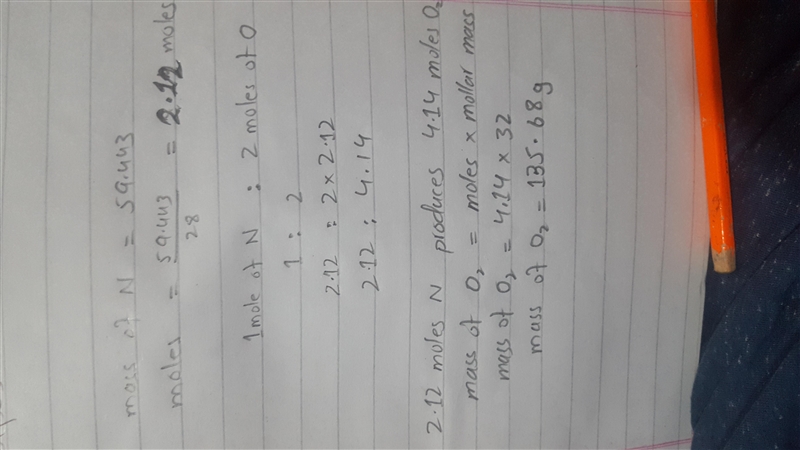 mass of N = 59.443
moles = 59.443 / 28 = 2.12 moles
1 mole of N : 2 moles of O
1 : 2
2.12 : 2 x 2.12
2.12 : 4.14
2.12 moles N produces 4.14 moles O₂
mass of O₂ = moles x mollar mass
mass of O₂ = 4.14 x 32
mass of O₂ = 135.68g